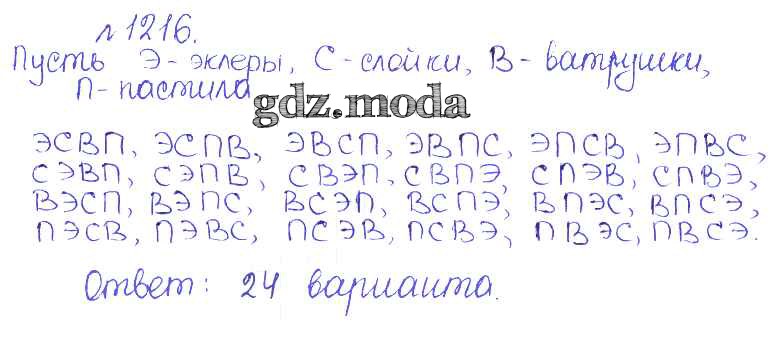 №1216.
Пусть Э-эклеры, С-слойки, В-ватрушки,
П-пастила
gdz.moda
ЭСВП, ЭСПВ, ЭВСП, ЭВПС, ЭПСВ, ЭПВС,
СЭВП, СЭПВ, СВЭП, СВПЭ, СПЭВ, СПВЭ,
ВЭСП, ВЭПС, ВСЭП, ВСПЭ, ВПЭС, ВПСЭ,
ПЭСВ, ПЭВС, ПСЭВ, ПСВЭ, ПВЭС, ПВСЭ.
Ответ: 24 варианта.